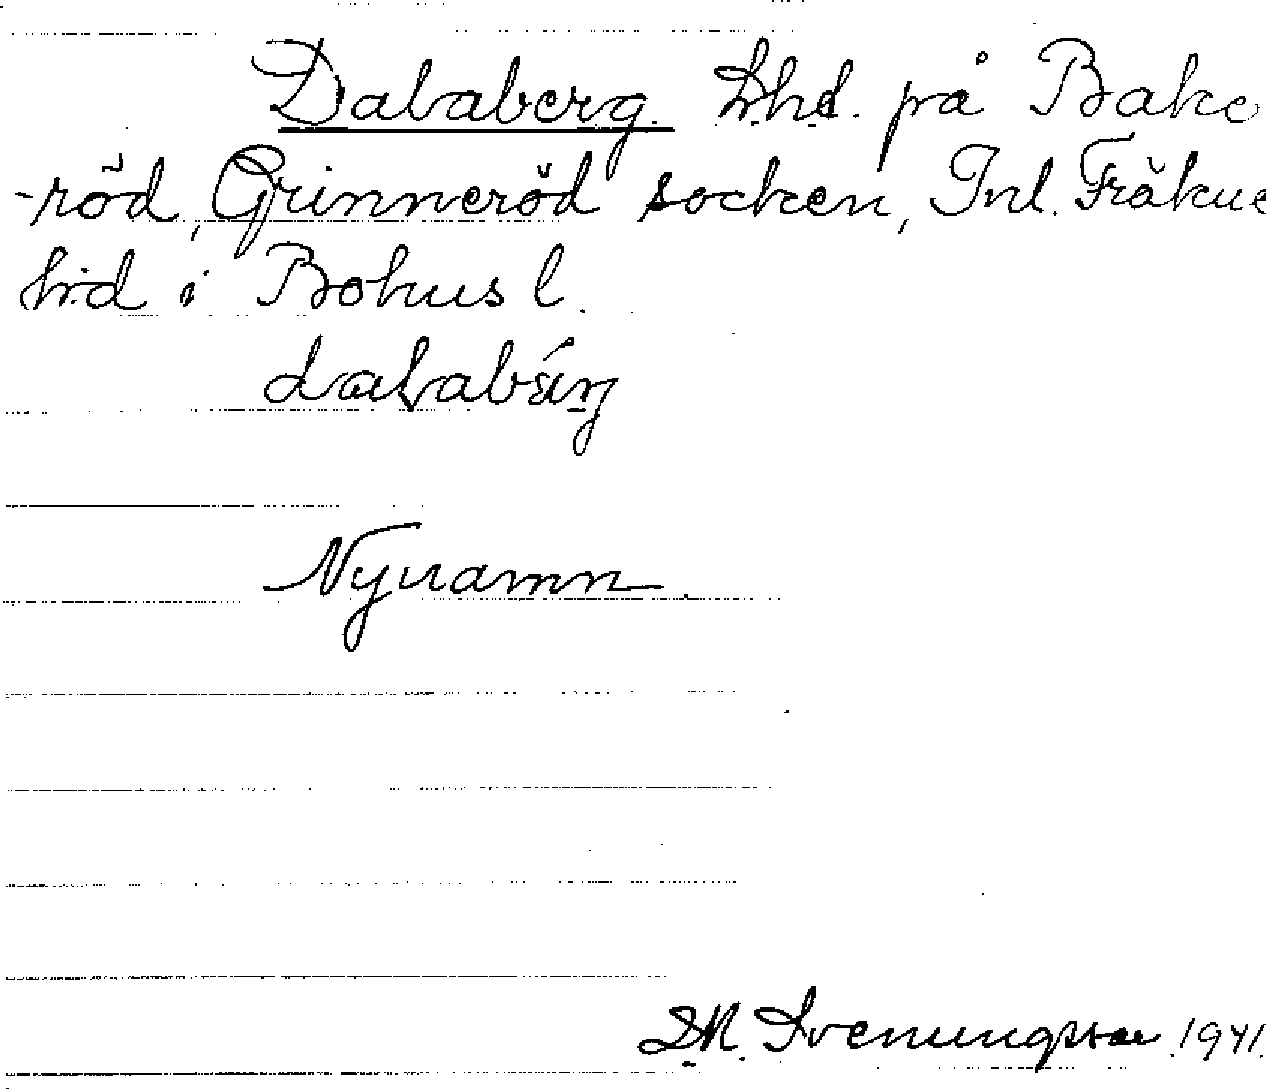 Dalaberg. Lhd. på Bake
-röd, Grinneröd socken, Inl. Fräkne
hd i Bohus l.
dalabärj
Nynamn.
D.N. Svenungsson 1941.